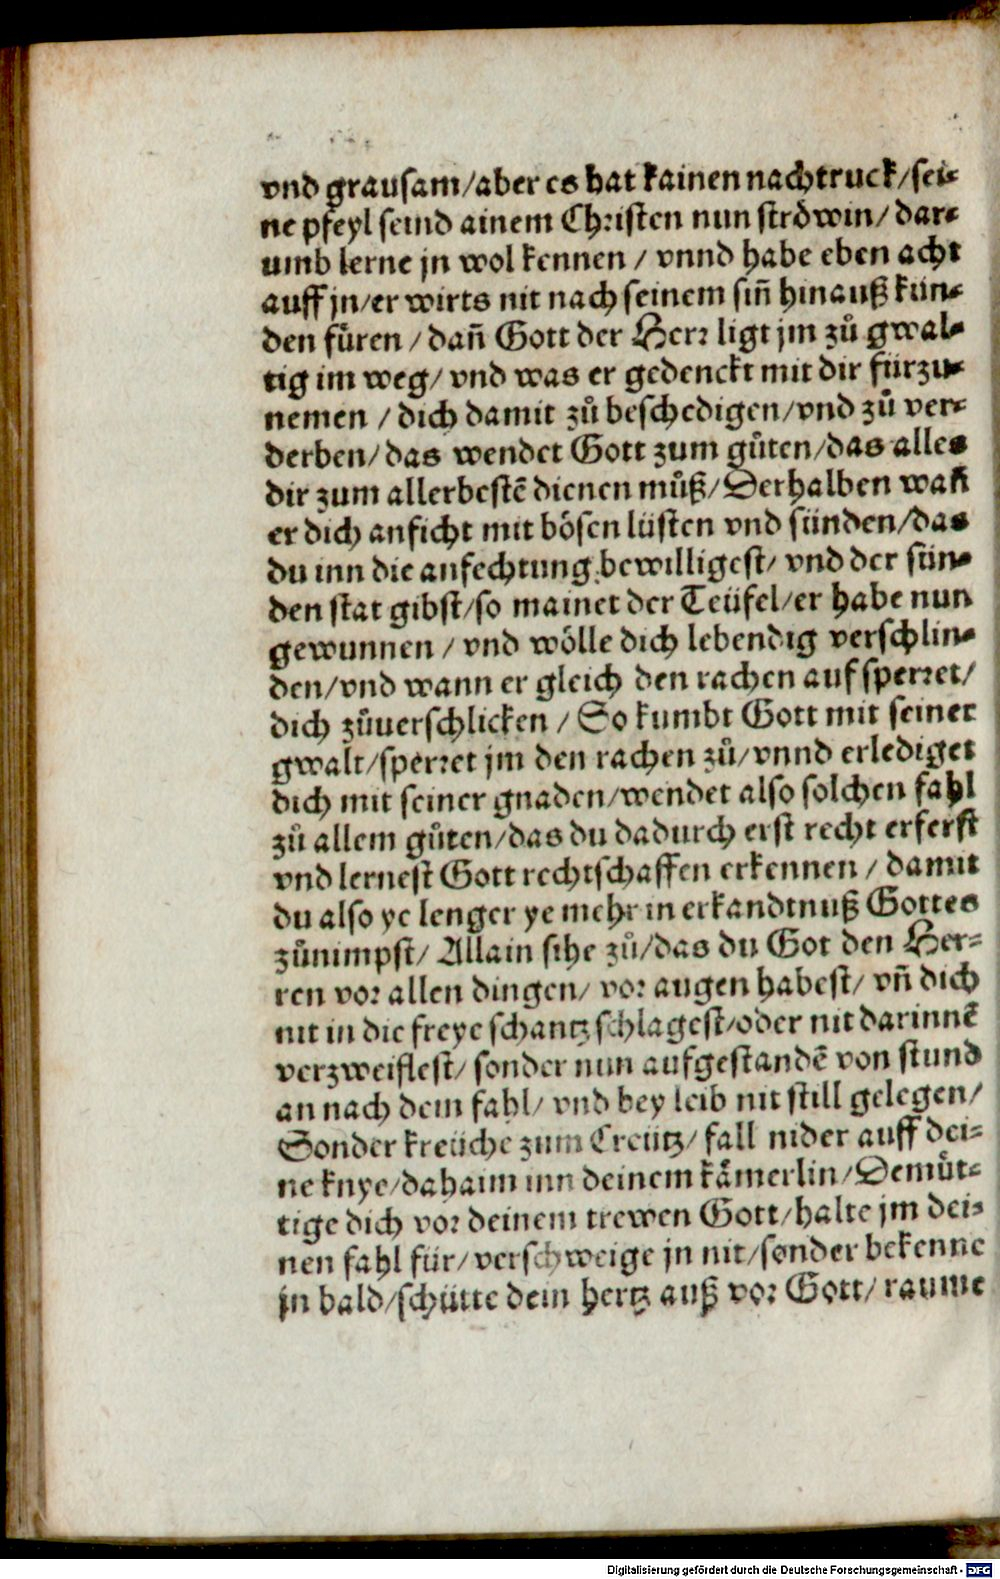 vnd grausam/aber es hat kainen nachtruck/sei-
ne pfeyl seind ainem Christen nun ströwin/ dar-
umb lerne jn wol kennen / vnnd habe eben acht
auff jn/er wirts nit nach seinem siñ hinauß kün-
den füren / dañ Gott der Herr ligt jm zů gwal-
tig im weg/ vnd was er gedenckt mit dir fürzu-
nemen / dich damit zů beschedigen/vnd zů ver-
derben/das wendet Gott zum gůten/das alles
dir zum allerbestẽ dienen můß/Derhalben wañ
er dich anficht mit bösen lüsten vnd sünden/das
du inn die anfechtung bewilligest/ vnd der sün-
den stat gibst/so mainet der Teüfel/er habe nun
gewunnen / vnd wölle dich lebendig verschlin-
den/vnd wann er gleich den rachen auf sperret/
dich zůuerschlicken / So kumbt Gott mit seiner
gwalt/sperret jm den rachen zů/vnnd erlediget
dich mit seiner gnaden/wendet also solchen fahl
zů allem gůten/das du dadurch erst recht erferst
vnd lernest Gott rechtschaffen erkennen / damit
du also ye lenger ye mehr in erkandtnuß Gottes
zůnimpst/ Allain sihe zů/das du Got den Her-
ren vor allen dingen/ vor augen habest/ vñ dich
nit in die freye schantz schlagest/oder nit darinnẽ
verzweiflest/ sonder nun aufgestandẽ von stund
an nach dem fahl/ vnd bey leib nit still gelegen/
Sonder kreüche zum Creütz/ fall nider auff dei-
ne knye/dahaim inn deinem kämerlin/Demůt-
tige dich vor deinem trewen Gott/halte jm dei-
nen fahl für/ verschweige jn nit/sonder bekenne
jn bald/schütte dein hertz auß vor Gott/ raume
Digitalisierung gefördert durch die Deutsche Forschungsgemeinschaft - DFG